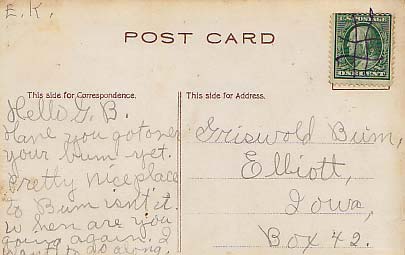 E. K.
POST CARD
U.S. POSTAGE
ONE CENT
This side for Correspondence.
This side for Address.
Hello G. B.
Have you gotover
your bum yet.
Pretty nice place
to Bum isn't it.
When are you
going again. I
want to go along.
Griswold Bum,
Elliott,
Iowa,
Box 42.